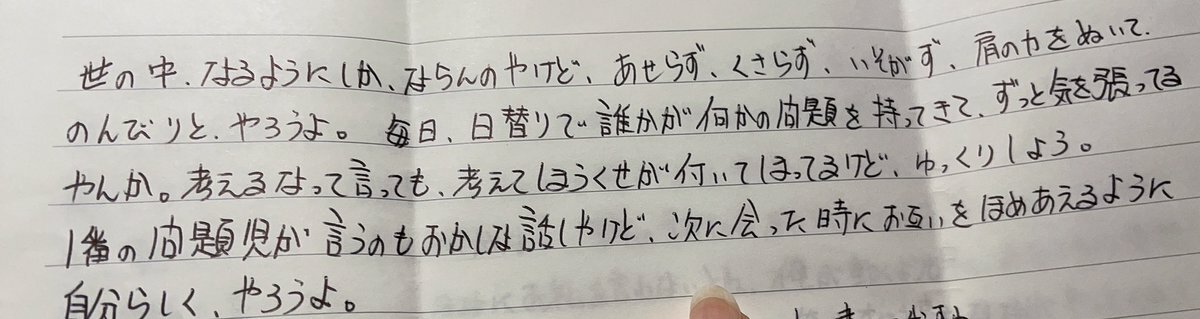 世の中、なるようにしか、ならんのやけど、あせらず、くさらず、いそがず、肩の力をぬいて、
のんびりと、やろうよ。毎日、日替りで誰かが何かの問題を持ってきて、ずっと気を張ってる
やんか。考えるなって言っても、考えてしまうくせが付いてしまってるけど、ゆっくりしよう。
1番の問題児が言うのもおかしな話しやけど、次に会った時にお互いをほめあえるように
自分らしく、やろうよ。